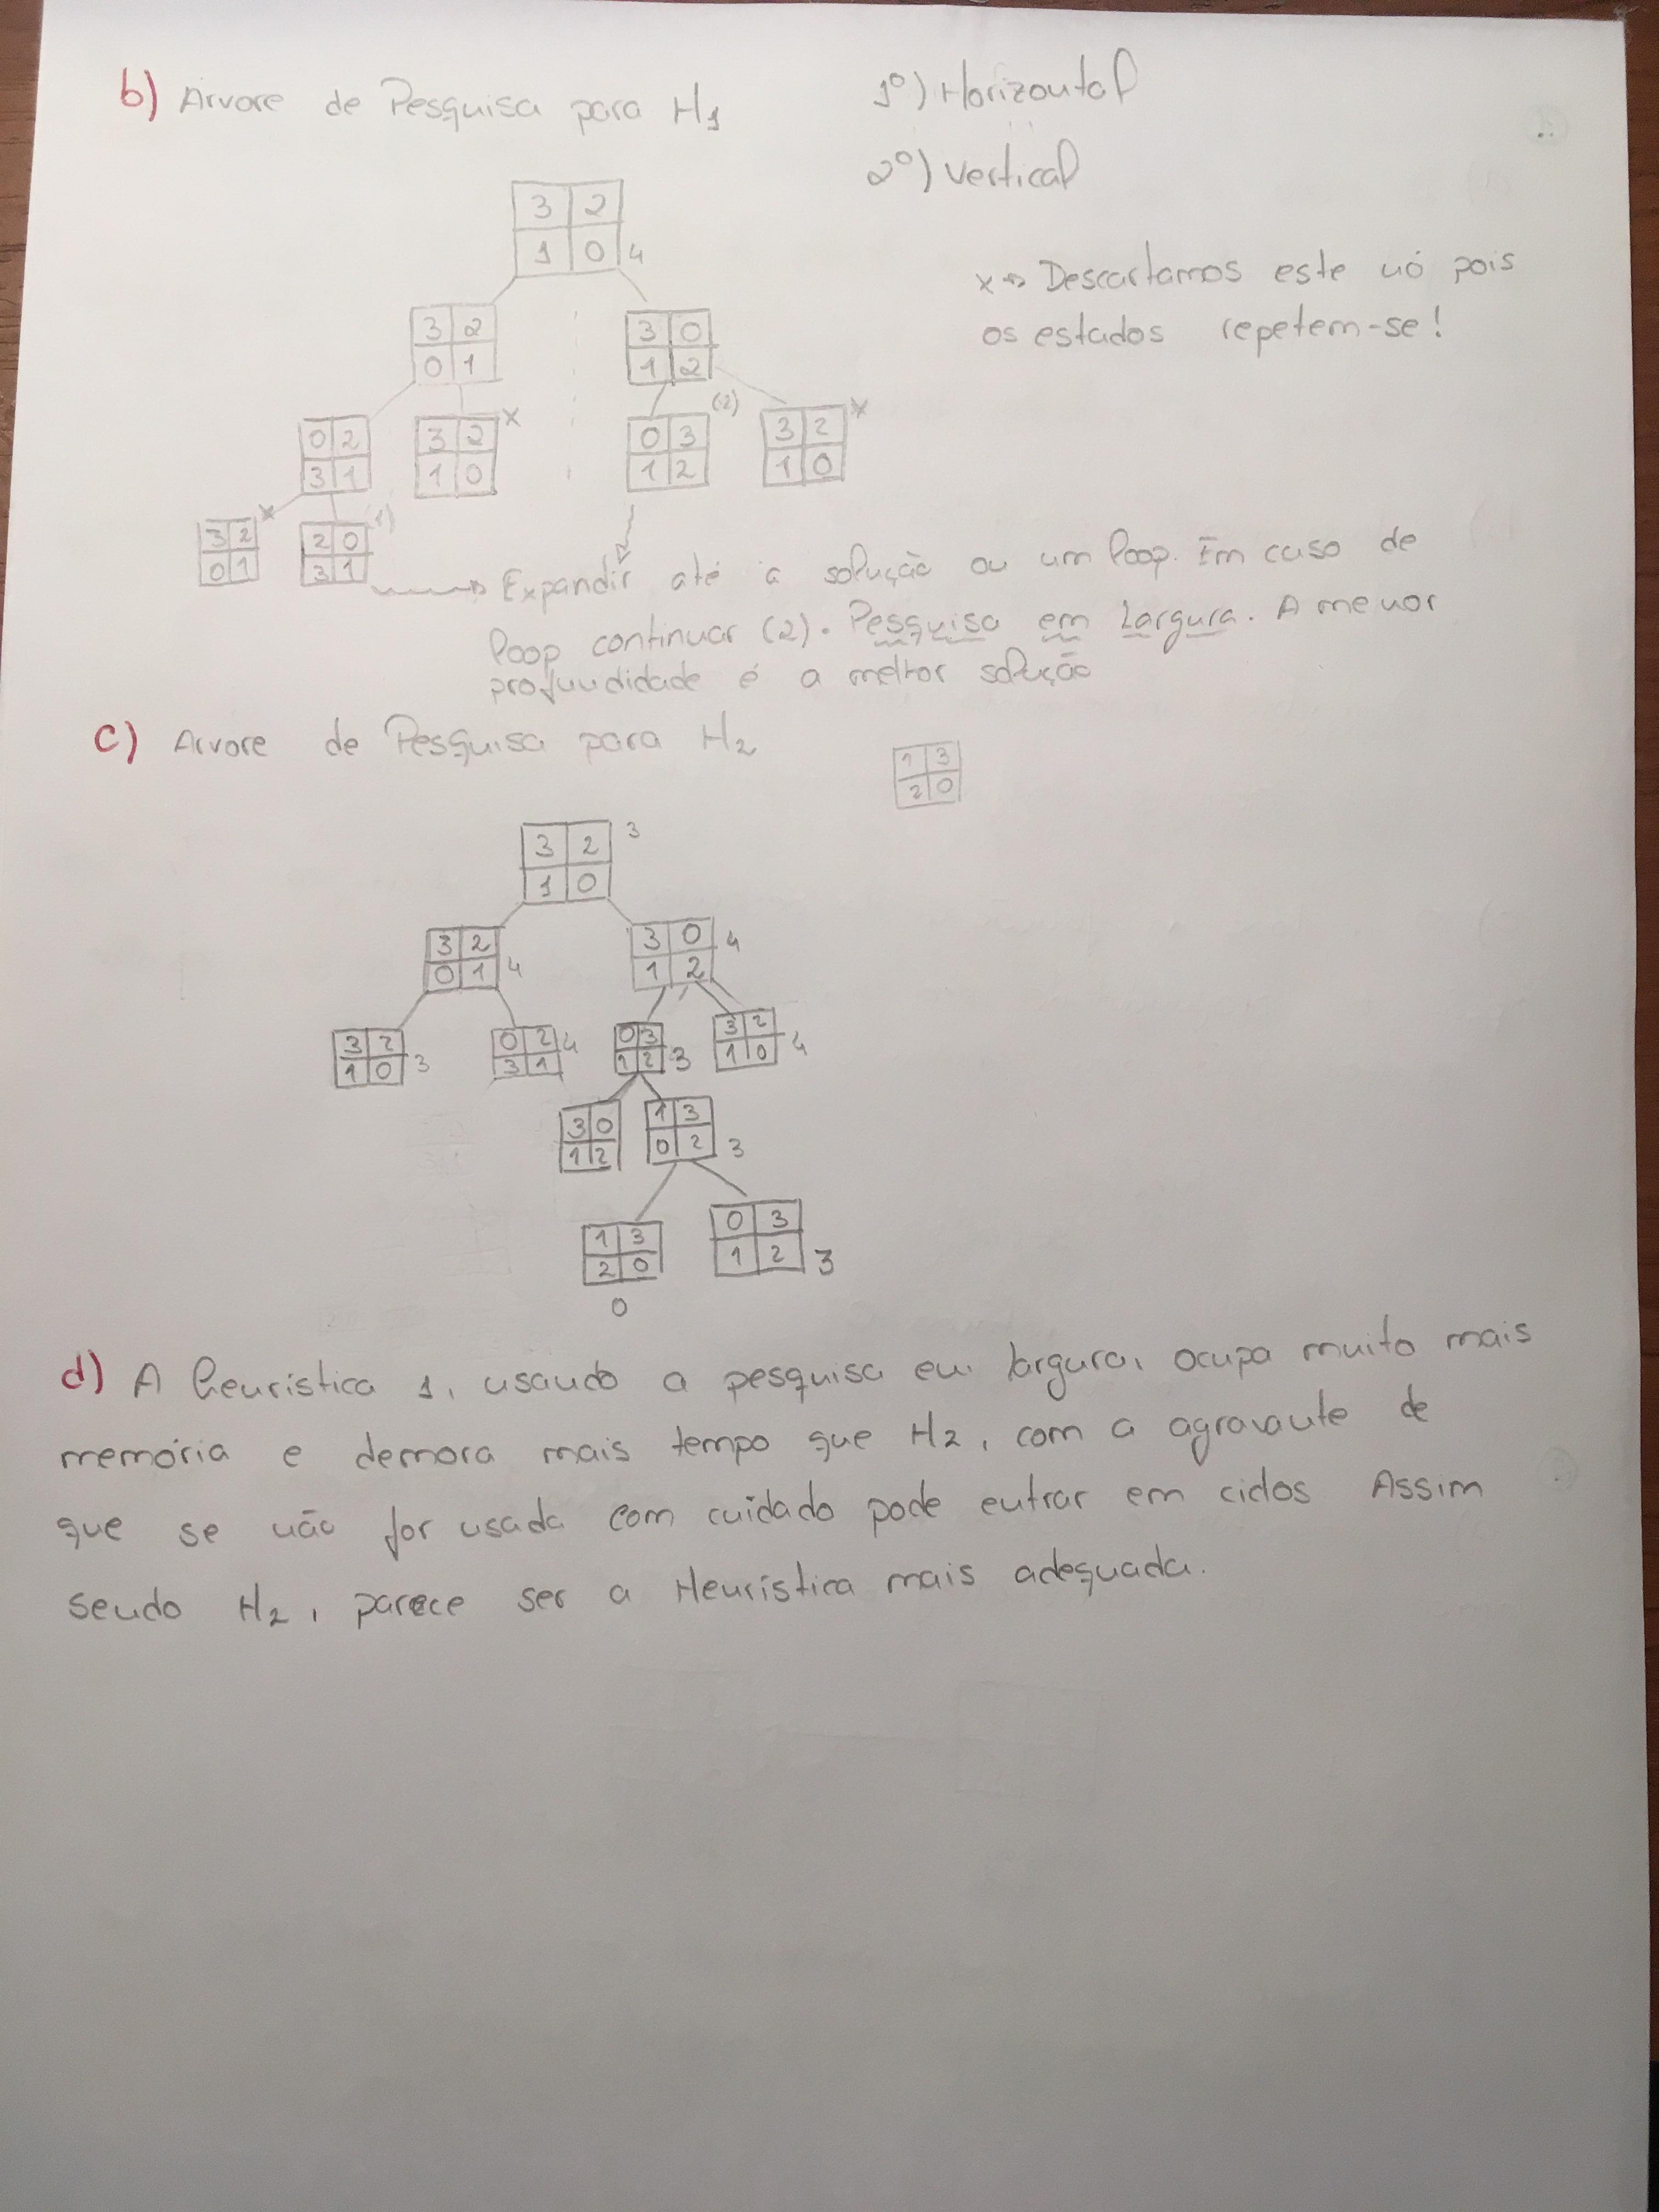 b) Arvore de Pesquisa para H1
1º) Horizontal
2º) Vertical
3 2
1 0 4
x → Descartamos este nó pois
os estados repetem-se!
3 2 3 0
0 1 1 2
0 2 3 2 x 0 3 (2) 3 2 x
3 1 1 0 1 2 1 0
3 2 x 2 0 (1)
0 1 3 1
Expandir até a solução ou um loop. Em caso de
loop continuar (2). Pesquisa em Largura. A menor
profundidade é a melhor solução
c) Arvore de Pesquisa para H2
1 3
2 0
3 2 3
1 0
3 2 3 0 4
0 1 4 1 2
3 2 0 2 4 0 3 3 2
1 0 3 3 1 1 2 3 1 0 4
3 0 1 3
1 2 0 2 3
1 3 0 3
2 0 1 2 3
0
d) A heurística 1, usando a pesquisa em largura, ocupa muito mais
memória e demora mais tempo que H2, com a agravante de
que se não for usada com cuidado pode entrar em ciclos Assim
sendo H2, parece ser a Heurística mais adequada.